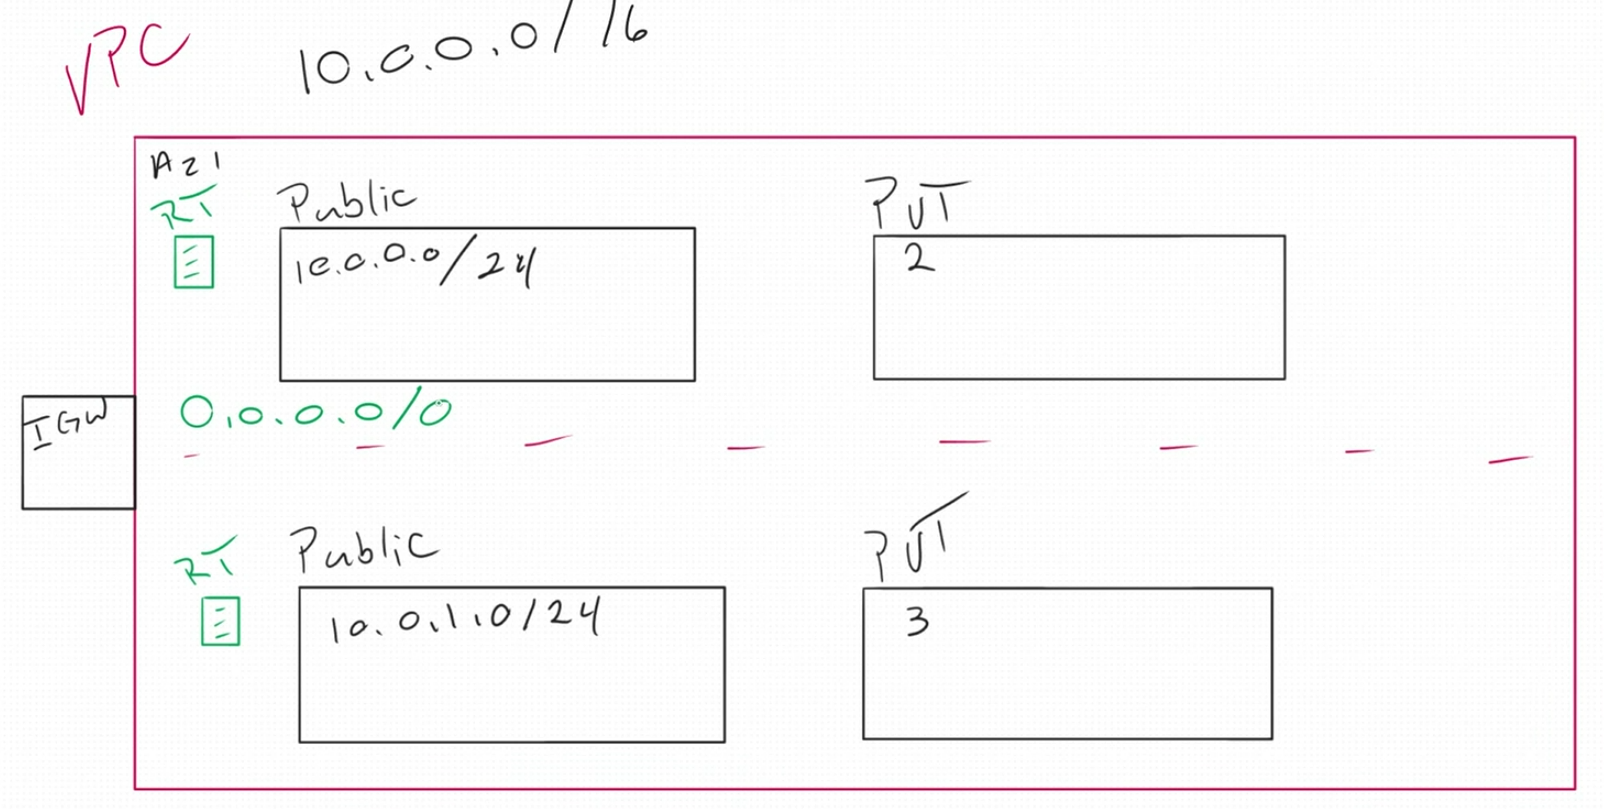 VPC 10.0.0.0/16
AZ1
RT
Public
10.0.0.0/24
PVT
2
IGW
0.0.0.0/0
RT
Public
10.0.1.0/24
PVT
3